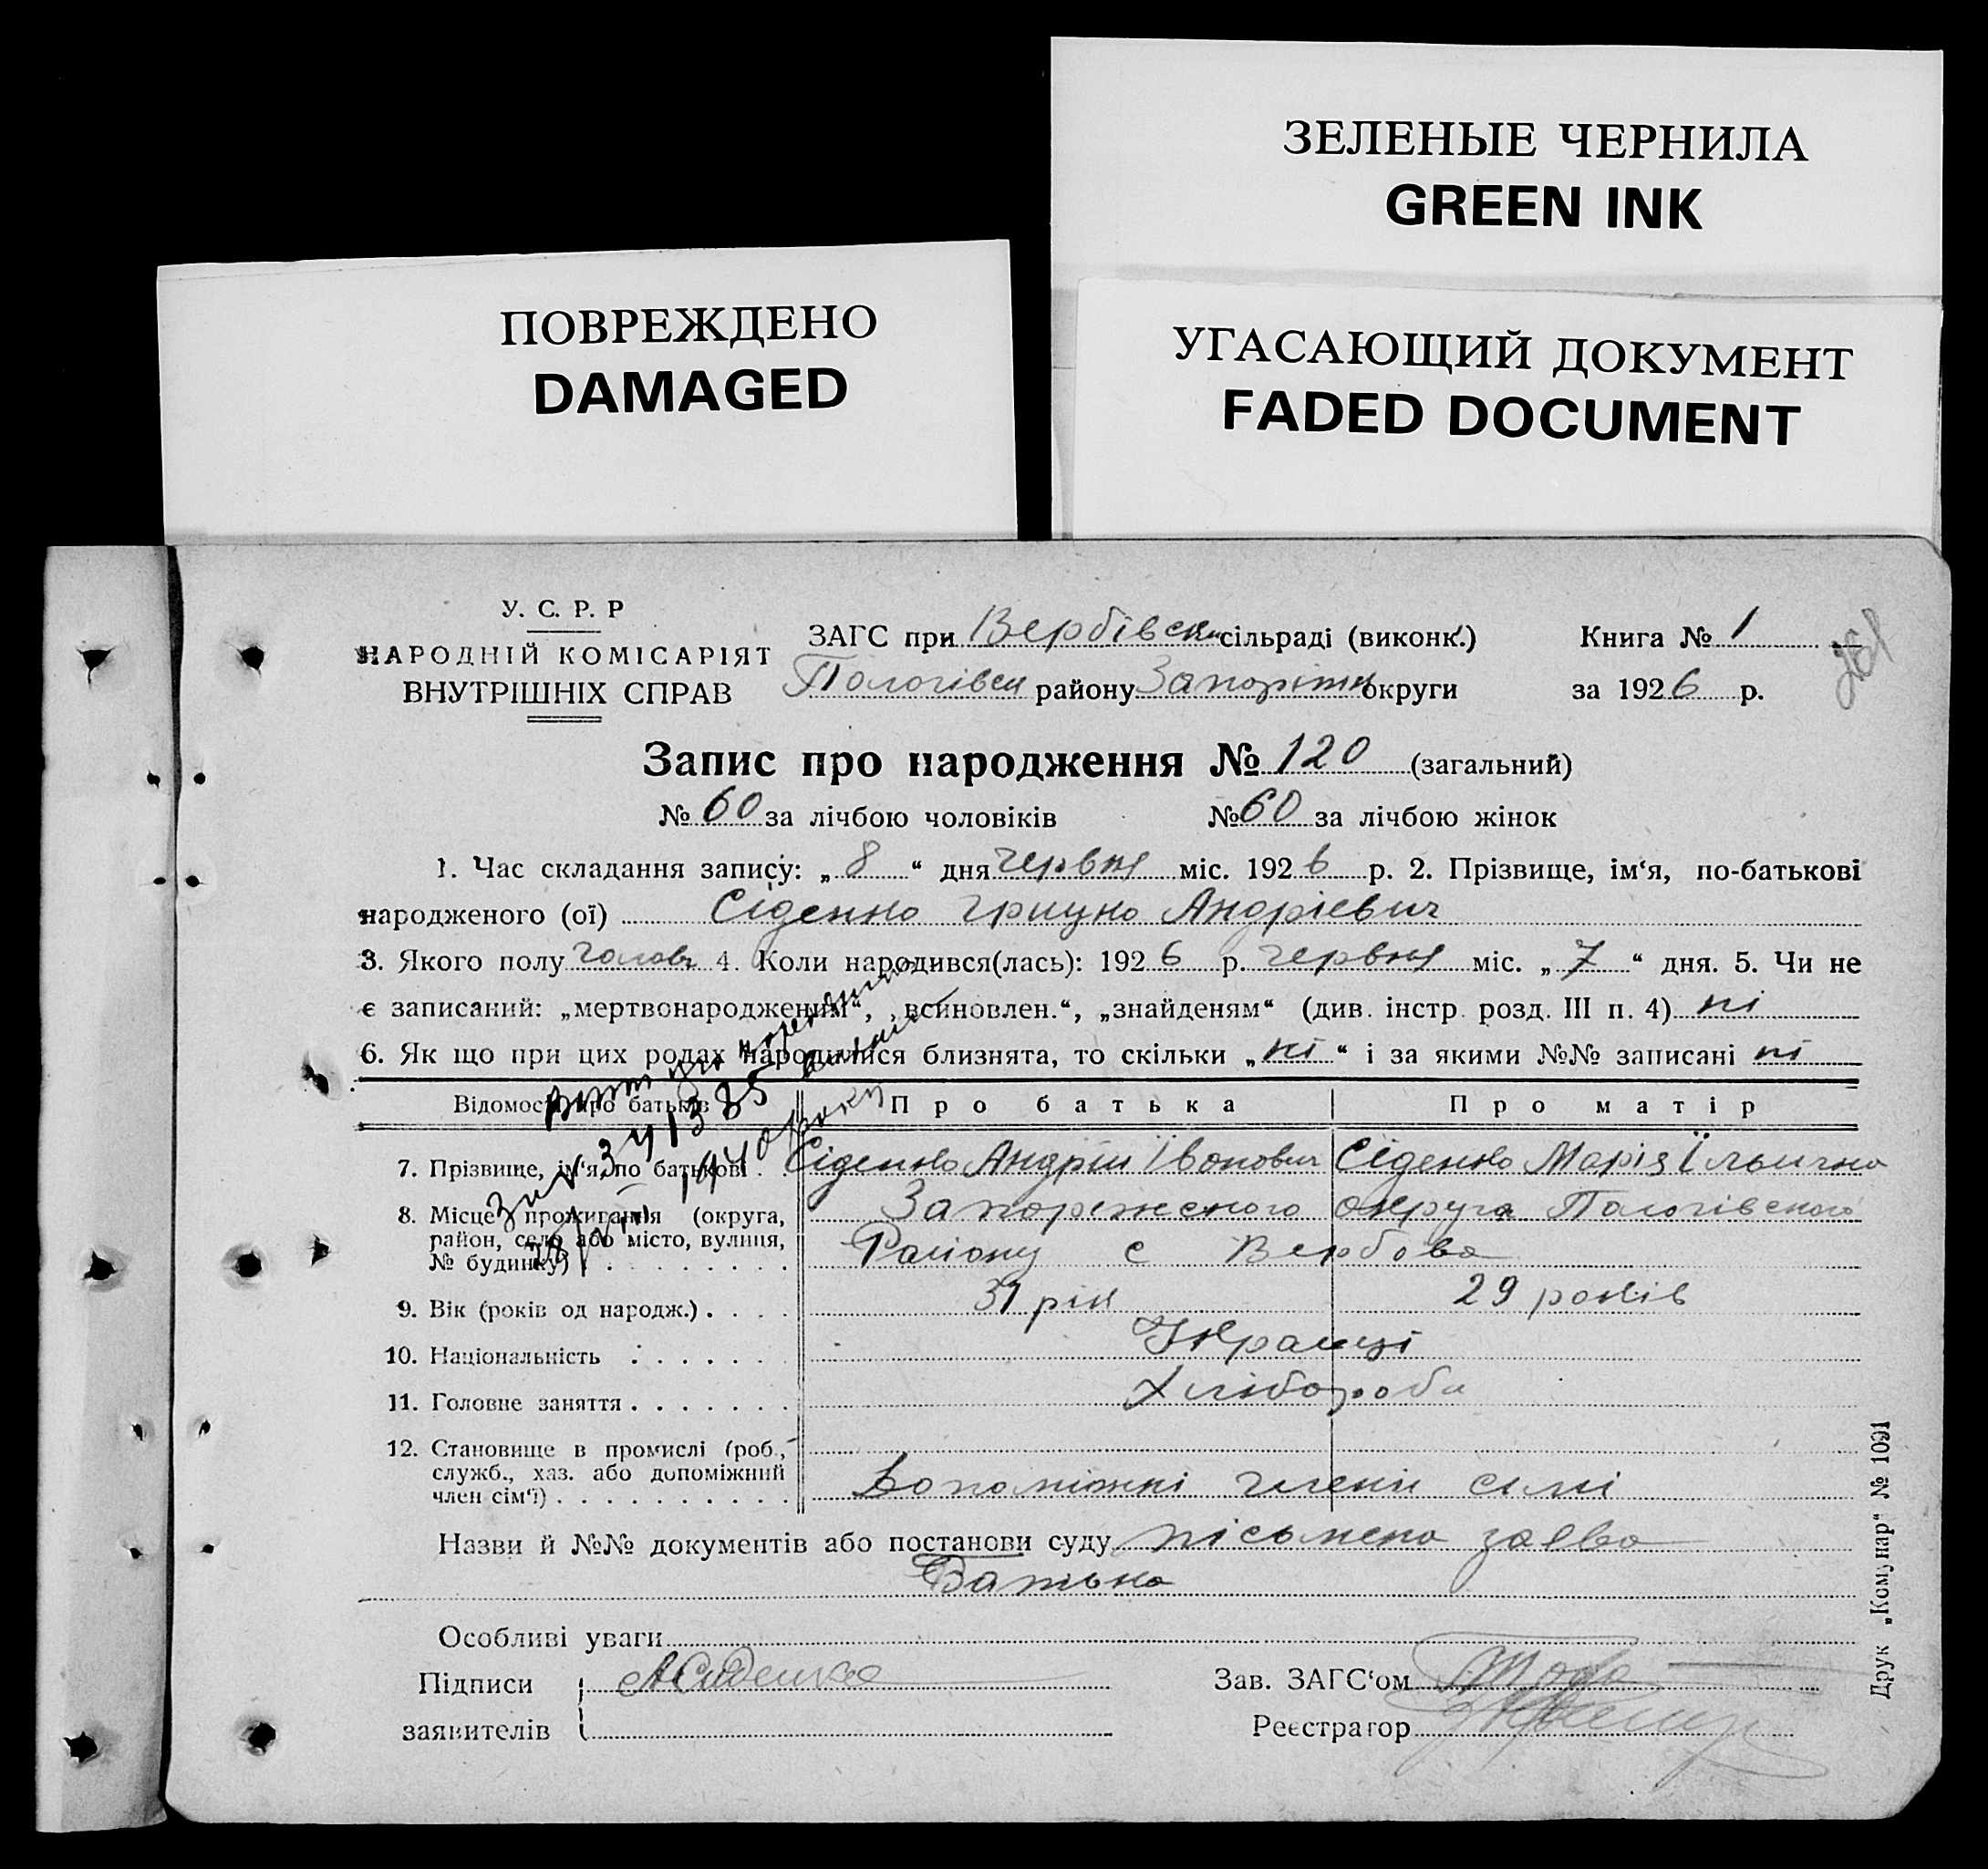 ЗЕЛЕНЫЕ ЧЕРНИЛА
GREEN INK
ПОВРЕЖДЕНО
DAMAGED
УГАСАЮЩИЙ ДОКУМЕНТ
FADED DOCUMENT
У. С. Р. Р
НАРОДНІЙ КОМІСАРІЯТ
ВНУТРІШНІХ СПРАВ
ЗАГС при Вербівськ сільраді (виконк.)
Пологівськ району Запоріжж округи
Книга № 1
за 1926 р.
Запис про народження № 120 (загальний)
№ 60 за лічбою чоловіків № 60 за лічбою жінок
1. Час складання запису: „ 8 “ дня червня міс. 1926 р. 2. Прізвище, ім‘я, по-батькові
народженого (ої) Сіденко Грицко Андрієвич
3. Якого полу чолов 4. Коли народився(лась): 1926 р. червня міс. „ 7 “ дня. 5. Чи не
є записаний: „мертвонародженим“, „всиновлен.“, „знайденям“ (див. інстр. розд. III п. 4) ні
6. Як що при цих родах народилися близнята, то скільки „ ні “ і за якими №№ записані ні
Відомості про батьків Про батька Про матір
7. Прізвище, ім‘я, по батькові Сіденко Андрій Івонович Сіденко Марія Їльична
8. Місце проживання (округа, Запоріжского округа Пологівского
район, село або місто, вулиця, Району с Вербова
№ будинку)
9. Вік (років од народж.) 31 рік 29 років
10. Національність Украінці
11. Головне заняття Хлібороби
12. Становище в промислі (роб.,
служб., хаз. або допоміжний
член сім‘ї) Допоміжні члени симі
Назви й №№ документів або постанови суду пісьмена заява
Батька
Особливі уваги
Підписи
заявителів
АСиденко
Зав. ЗАГС‘ом
Реєстратор
Друк „Комунар“ № 1091